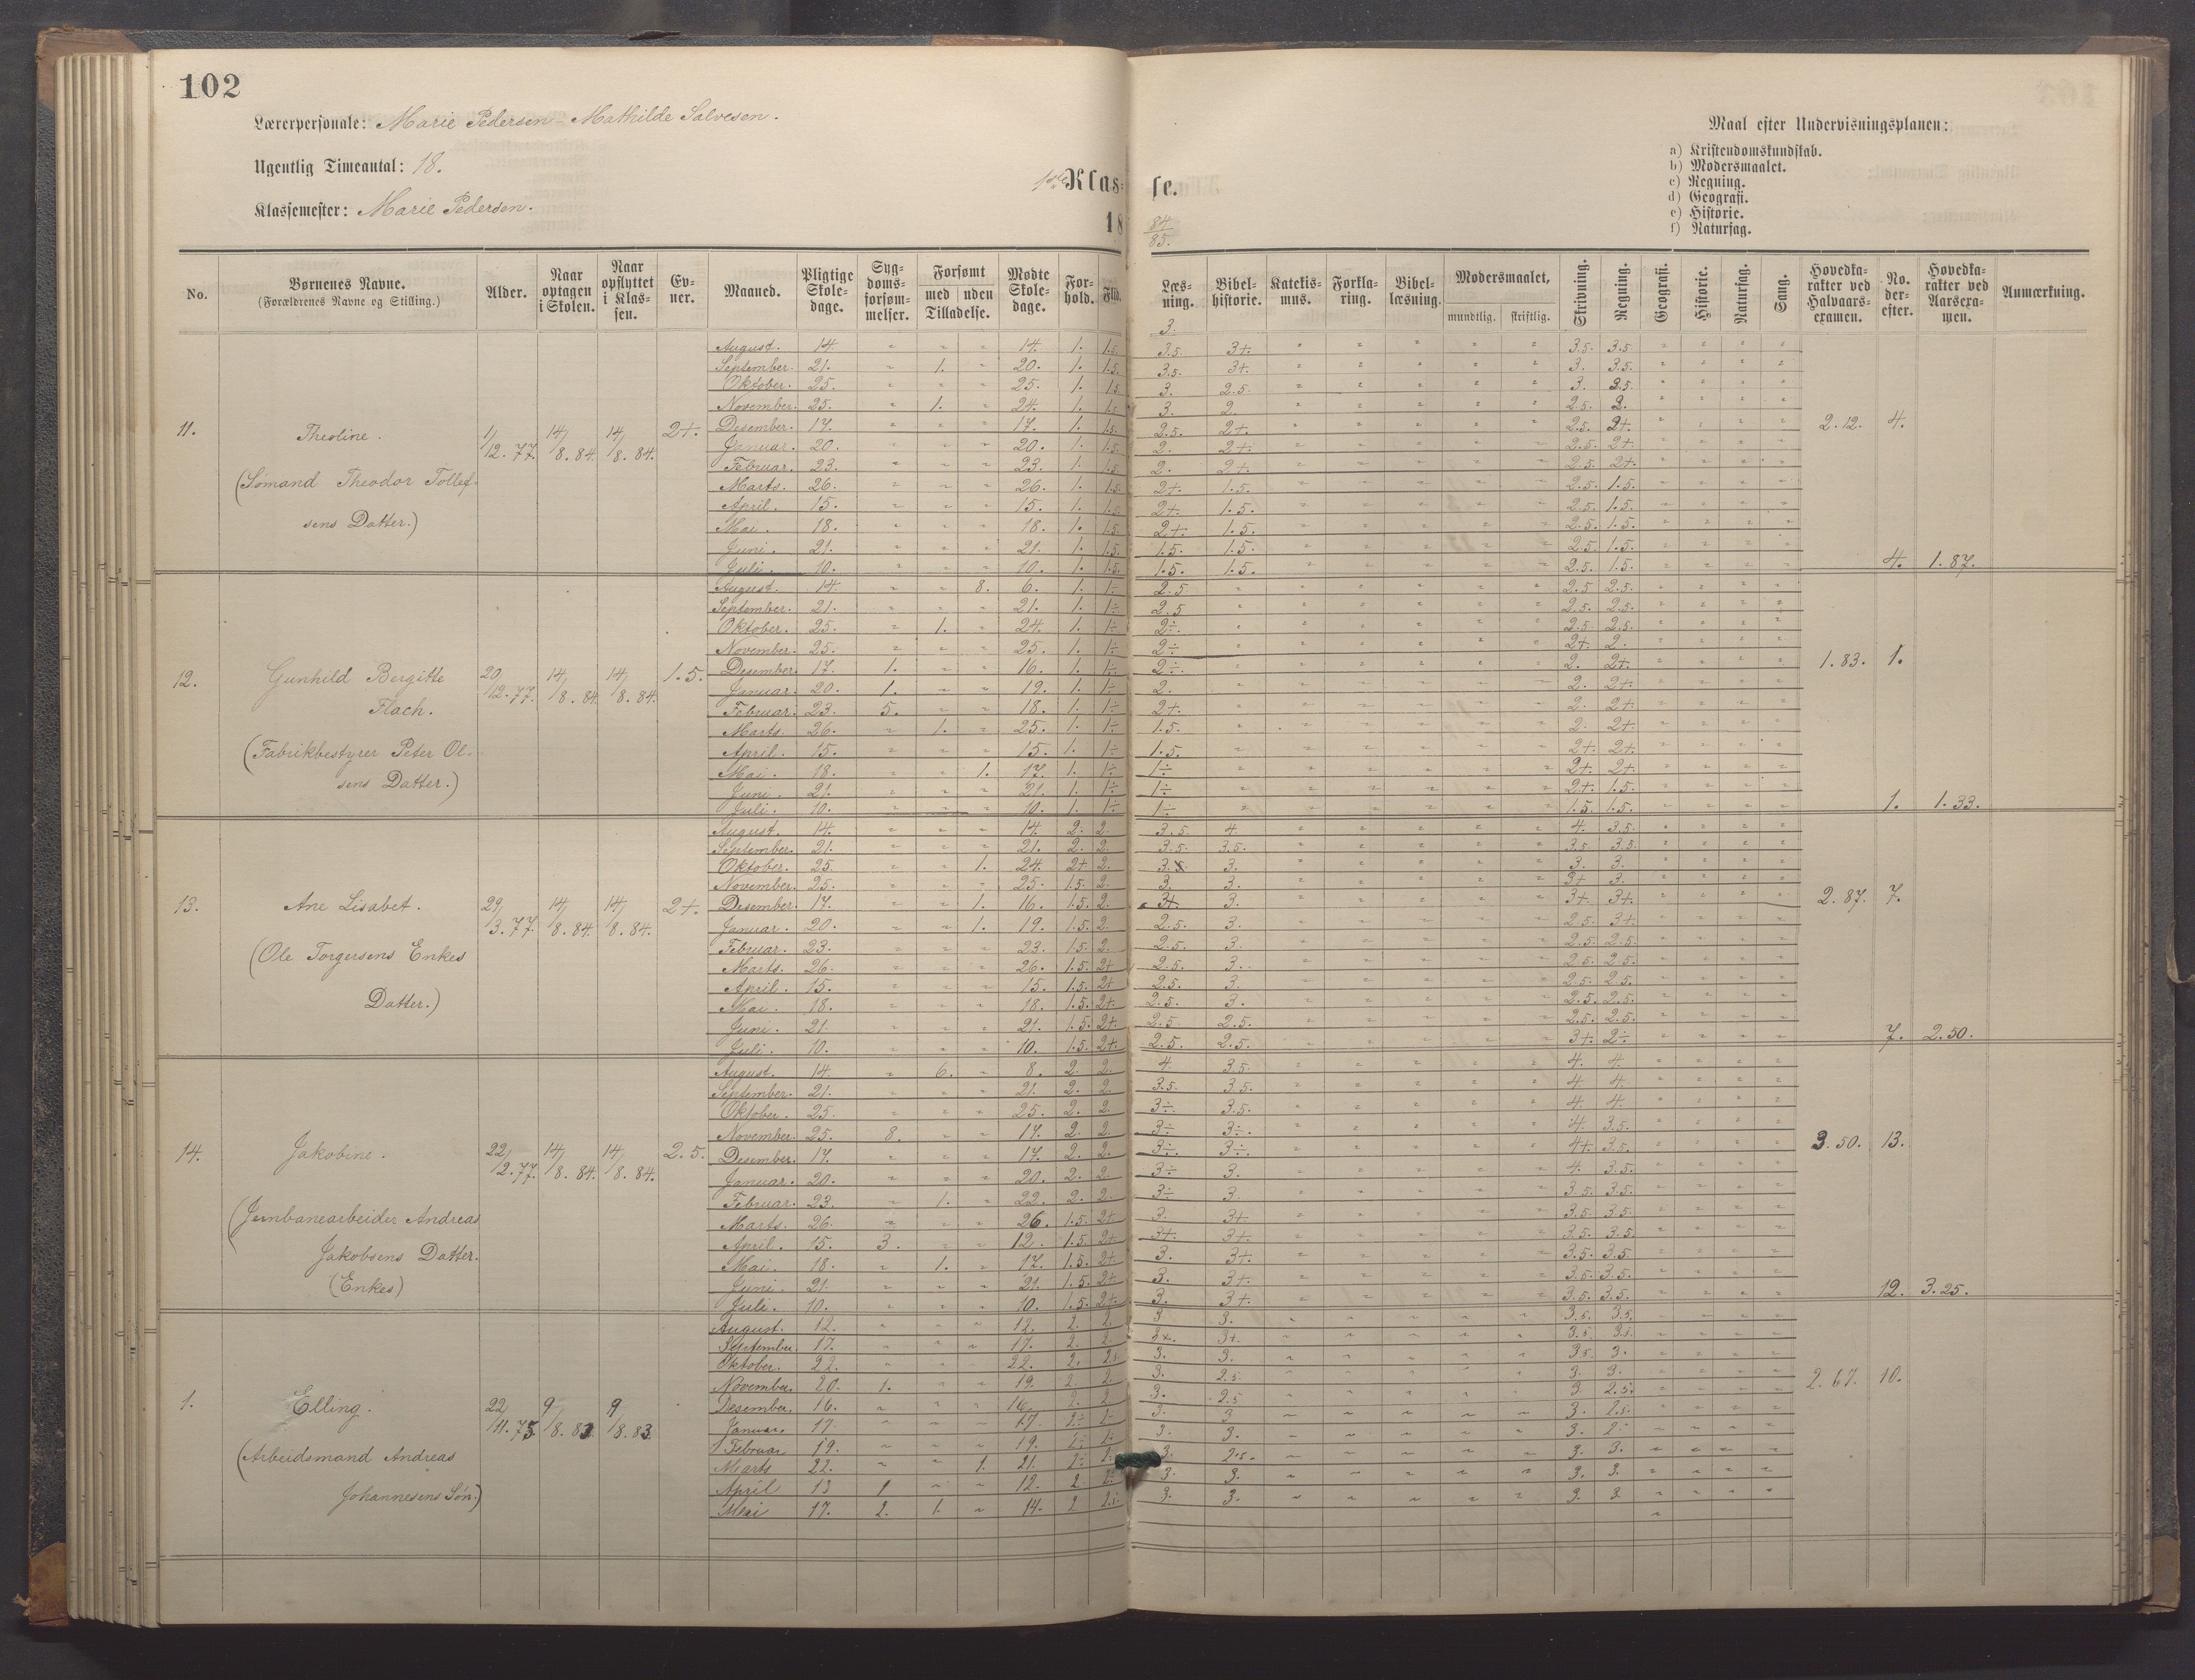 102
Lærerpersonale: Marie Pedersen - Mathilde Salvesen.
Ugentlig Timeantal: 18.
Klassemester: Marie Pedersen.
1ste Klasse.
18 84/85.
Maal efter Undervisningsplanen:
a) Kristendomskundskab.
b) Modersmaalet.
c) Regning.
d) Geografi.
e) Historie.
f) Naturfag.
No. Børnenes Navne. (Forældrenes Navne og Stilling.) Alder. Naar optagen i Skolen. Naar opflyttet i Klassen. Evner. Maaned. Pligtige Skoledage. Sygdomsforsømmelser. Forsømt med uden Tilladelse. Mødte Skoledage. Forhold. Flid. Læsning. Bibelhistorie. Katekismus. Forklaring. Bibellæsning. Modersmaalet, mundtlig. skriftlig. Skrivning. Regning. Geografi. Historie. Naturfag. Sang. Hovedkarakter ved Halvaarsexamen. No. derefter. Hovedkarakter ved Aarsexamen. Anmærkning.
11. Theoline. 1/12.77. 14/8.84. 14/8.84. 2+. 2.12. 4.
(Sømand Theodor Tollefsens Datter.)
August. 14. " " " 14. 1. 1.5. 3.5. 3+. 3.5. 3.5.
September. 21. " 1. " 20. 1. 1.5. 3.5. 3+. 3. 3.5.
Oktober. 25. " " " 25. 1. 1.5. 3. 2.5. 3. 3.5.
November. 25. " 1. " 24. 1. 1.5. 3. 2. 2.5. 3.
Desember. 17. " " " 17. 1. 1.5. 2.5. 2+. 2.5. 2+.
Januar. 20. " " " 20. 1. 1.5. 2. 2+. 2.5. 2+.
Februar. 23. " " " 23. 1. 1.5. 2. 2+. 2.5. 2+.
Marts. 26. " " " 26. 1. 1.5. 2+. 1.5. 2.5. 1.5.
April. 15. " " " 15. 1. 1.5. 2+. 1.5. 2.5. 1.5.
Mai. 18. " " " 18. 1. 1.5. 2+. 1.5. 2.5. 1.5.
Juni. 21. " " " 21. 1. 1.5. 1.5. 1.5. 2.5. 1.5.
Juli. 10. " " " 10. 1. 1.5. 1.5. 1.5. 2.5. 1.5. 4. 1.87.
12. Gunhild Bergitte Flach. 20/12.77. 14/8.84. 14/8.84. 1.5. 1.83. 1.
(Fabrikbestyrer Peter Olsens Datter.)
August. 14. " " 8. 6. 1. 1÷ 2.5 2.5 2.5.
September. 21. " " " 21. 1. 1÷ 2.5 2.5. 2.5.
Oktober. 25. " 1. " 24. 1. 1÷ 2÷. 2.5. 2.5.
November. 25. " " " 25. 1. 1÷ 2÷ 2+. 2.
Desember. 17. 1. " " 16. 1. 1÷ 2÷ 2. 2+.
Januar. 20. 1. " " 19. 1. 1÷ 2. 2. 2+.
Februar. 23. 5. " " 18. 1. 1÷ 2+. 2. 2+
Marts. 26. " 1. " 25. 1. 1÷ 1.5. 2. 2+
April. 15. " " " 15. 1. 1÷ 1.5. 2+. 2+.
Mai. 18. " " 1. 17. 1. 1÷ 1÷ 2+. 2+.
Juni. 21. " " " 21. 1. 1÷ 1÷ 2+. 1.5.
Juli. 10. " " " 10. 1. 1÷ 1÷ 1.5. 1.5. 1. 1.33.
13. Ane Lisabet. 29/3.77. 14/8.84. 14/8.84. 2+. 2.87. 7.
(Ole Torgersens Enkes Datter.)
August. 14. " " " 14. 2. 2. 3.5. 4. 4. 3.5.
September. 21. " " " 21. 2. 2. 3.5. 3.5. 3.5. 3.5.
Oktober. 25. " " 1. 24. 2+ 2. 3. 3. 3.
November. 25. " " " 25. 1.5. 2. 3. 3. 3+ 3.
Desember. 17. " " 1. 16. 1.5. 2. 3+. 3. 3+. 3+.
Januar. 20. " " 1. 19. 1.5. 2. 2.5. 3. 2.5. 3+
Februar. 23. " " " 23. 1.5. 2. 2.5. 3. 2.5. 2.5.
Marts. 26. " " " 26. 1.5. 2+ 2.5. 3. 2.5. 2.5.
April. 15. " " " 15. 1.5. 2+ 2.5. 3. 2.5. 2.5.
Mai. 18. " " " 18. 1.5. 2+. 2.5. 3. 2.5. 2.5.
Juni. 21. " " " 21. 1.5. 2+. 2.5 2.5. 2.5. 2.5.
Juli. 10. " " " 10. 1.5. 2+. 2.5. 2.5. 3+. 2÷. 7. 2.50.
14. Jakobine. 22/2.77. 14/8.84. 14/8.84. 2.5. 3.50. 13.
(Jernbanearbeider Andreas Jakobsens Datter. (Enkes)
August. 14. " 6. " 8. 2. 2. 4. 3.5. 4. 4.
September. 21. " " " 21. 2. 2. 3.5. 3.5. 4. 4.
Oktober. 25. " " " 25. 2. 2. 3÷. 3.5. 4. 4.
November. 25. 8. " " 17. 2. 2. 3÷ 3÷. 4. 3.5.
Desember. 17. " " " 17. 2. 2. 3÷. 3÷. 4+. 3.5.
Januar. 20. " " " 20. 2. 2. 3÷ 3. 4. 3.5.
Februar. 23. " 1. " 22. 2. 2. 3÷ 3. 3.5. 3.5.
Marts. 26. " " " 26. 1.5. 2+ 3. 3+ 3.5. 3.5.
April. 15. 3. " " 12. 1.5. 2+ 3+. 3+. 3.5. 3.5.
Mai. 18. " 1. " 17. 1.5. 2+ 3. 3+. 3.5. 3.5.
Juni. 21. " " " 21. 1.5. 2+. 3. 3+. 3.5. 3.5.
Juli. 10. " " " 10. 1.5. 2+. 3. 3+. 3.5. 3.5. 12. 3.25.
1. Elling. 22/11.75. 9/8.83 9/8.83 2.67. 10.
(Arbeidsmand Andreas Johannesens Søn.)
August. 12. " " " 12. 2. 2. 3 3. 3.5. 3.5.
September. 17. " " " 17. 2. 2. 3+. 3.5 3.5.
Oktober. 22. " " 22. 2. 3. 3. 3.5. 3.
November. 20. 1. " " 19. 2. 2. 3. 2.5. 3. 3.
Desember. 16. " " " 16. 2. 2. 3. 2.5 3 2.5.
Januar 17. " " " 17. 3. 3 3.
Februar 19. " " " 19. 3. 3. 3.
Marts 22. " " 1. 21. 3. 2.5. 3. 3.
April 13 1 " " 12. 2. 3. 3. 3. 3.
Mai 17. 2. 1. " 14. 2 3. 3. 3. 3